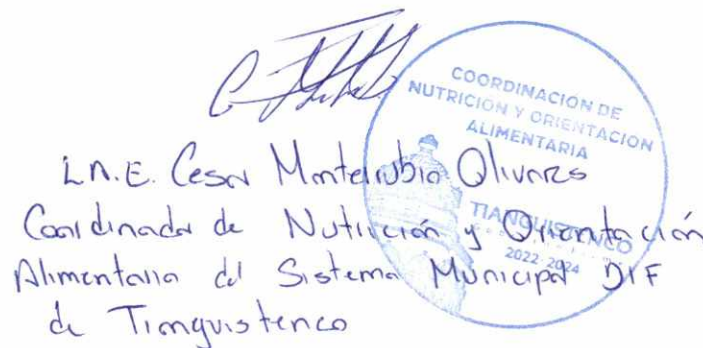 COORDINACIÓN DE
NUTRICIÓN Y ORIENTACIÓN
ALIMENTARIA
TIANGUISTENCO
2022-2024
L.N.E. Cesar Monterrubio Olivares
Coordinador de Nutrición y Orientación
Alimentaria del Sistema Municipal DIF
de Tianguistenco